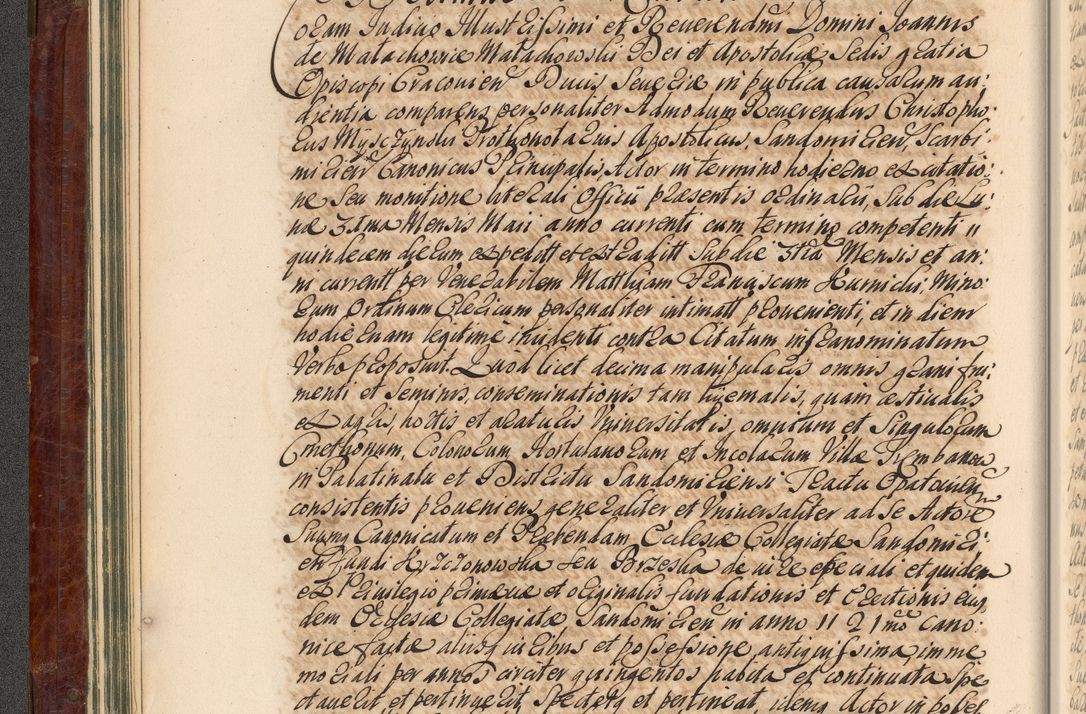 oram Iudicio Illustrissimi et Reuerendmi Domini Joannis
de Małachowice Małachowski Dei et Apostolicæ Sedis gratia
Episcopi Cracouien Ducis Seueriæ in publica causarum au:
dientia comparens personaliter Admodum Reuerendus Christopho:
rus Myszczynski Prothonotarius Apostolicus, Sandomirien, Scarbi:
mirien Canonicus Principalis, Actor in termino hodierno ex citatio:
ne seu monitione literali Officii præsentis ordinarii, Sub die Lu:
næ 31ma Mensis Maii anno currenti cum termino competenti
quindecem dierum expeditt et extraditt Sub die Mensis et an:
ni currentt per Venerabilem Matthiam Franciscum Kurnicki Mino:
rum Ordinum Clericum personaliter intimatt prouenienti, et in diem
hodiernam legitime incidenti contra Citatum infranominatum
Verbo proposuit. Quod licet decima manipularis omnis grani fru:
menti et Seminis, conseminationis tam hyemalis, quam æstiualis
ex agris, noctis et araturis Vniversitatis, omnium et Singulorum
Cmethonum, Colonorum, Hortulanorum et Incolarum Villæ
in Palatinatu et Districtu Sandomiriensi Tractu Opatouien
consistentis proueniens, generaliter et Vniuersaliter ad Se Actore
Suumq Canonicatum et Præbendam Ecclesiæ Collegiatæ Sandomiri:
en fundi Krzczonowska seu Brzeska de iure speciali et quidem
ex Priuilegio primæuæ et originalis fundationis et erectionis eius
dem Ecclesiæ Collegiatæ Sandomirien in anno 1121mo cano:
nice factæ aliisq iuribus et possessione, antiquissima, imme
moriali per annos circiter quingentos habita et continuata spe
ctauerit et pertinuerit Spectetq et pertineat, idemq Actor in posses